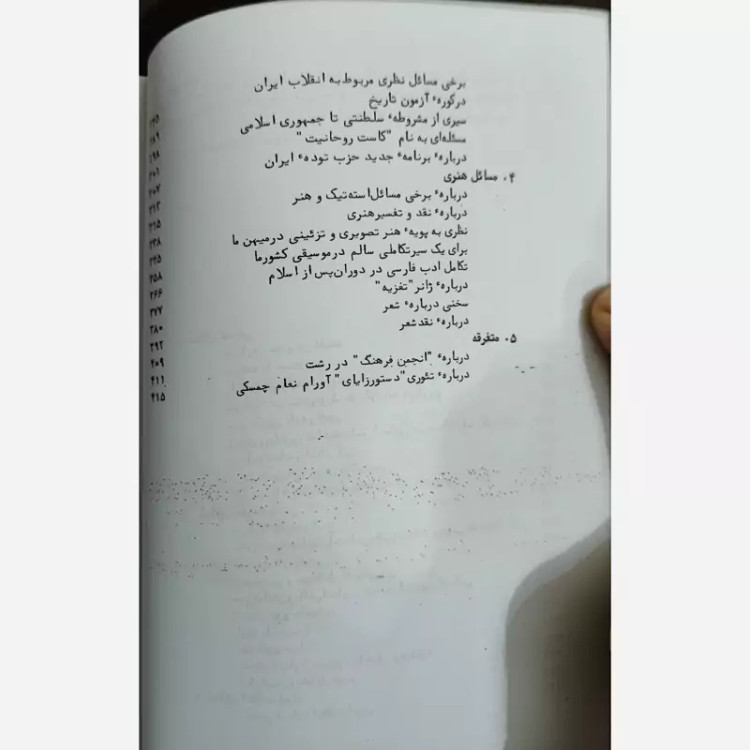 برخی مسائل نظری مربوط به انقلاب ایران
درکورهٔ آزمون تاریخ
سیری از مشروطهٔ سلطنتی تا جمهوری اسلامی
مسئله‌ای به نام "کاست روحانیت"
دربارهٔ برنامهٔ جدید حزب تودهٔ ایران
۴. مسائل هنری
دربارهٔ برخی مسائل استه‌تیک و هنر
دربارهٔ نقد و تفسیرهنری
نظری به پویهٔ هنر تصویری و تزئینی درمیهن ما
برای یک سیرتکاملی سالم درموسیقی کشورما
تکامل ادب فارسی در دوران‌پس از اسلام
دربارهٔ ژانر "تغزیه"
سخنی دربارهٔ شعر
دربارهٔ نقدشعر
۵. متفرقه ۴۰۹
دربارهٔ "انجمن فرهنگ" در رشت ۴۱۱
دربارهٔ تئوری "دستورزایای" آورام نعام چمسکی ۴۱۵